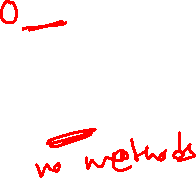 0
no methods